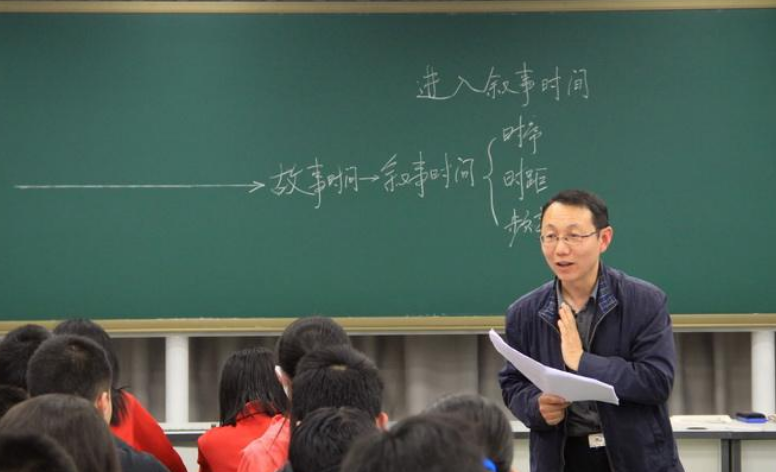 进入叙事时间
故事时间→叙事时间
时序
时距
频